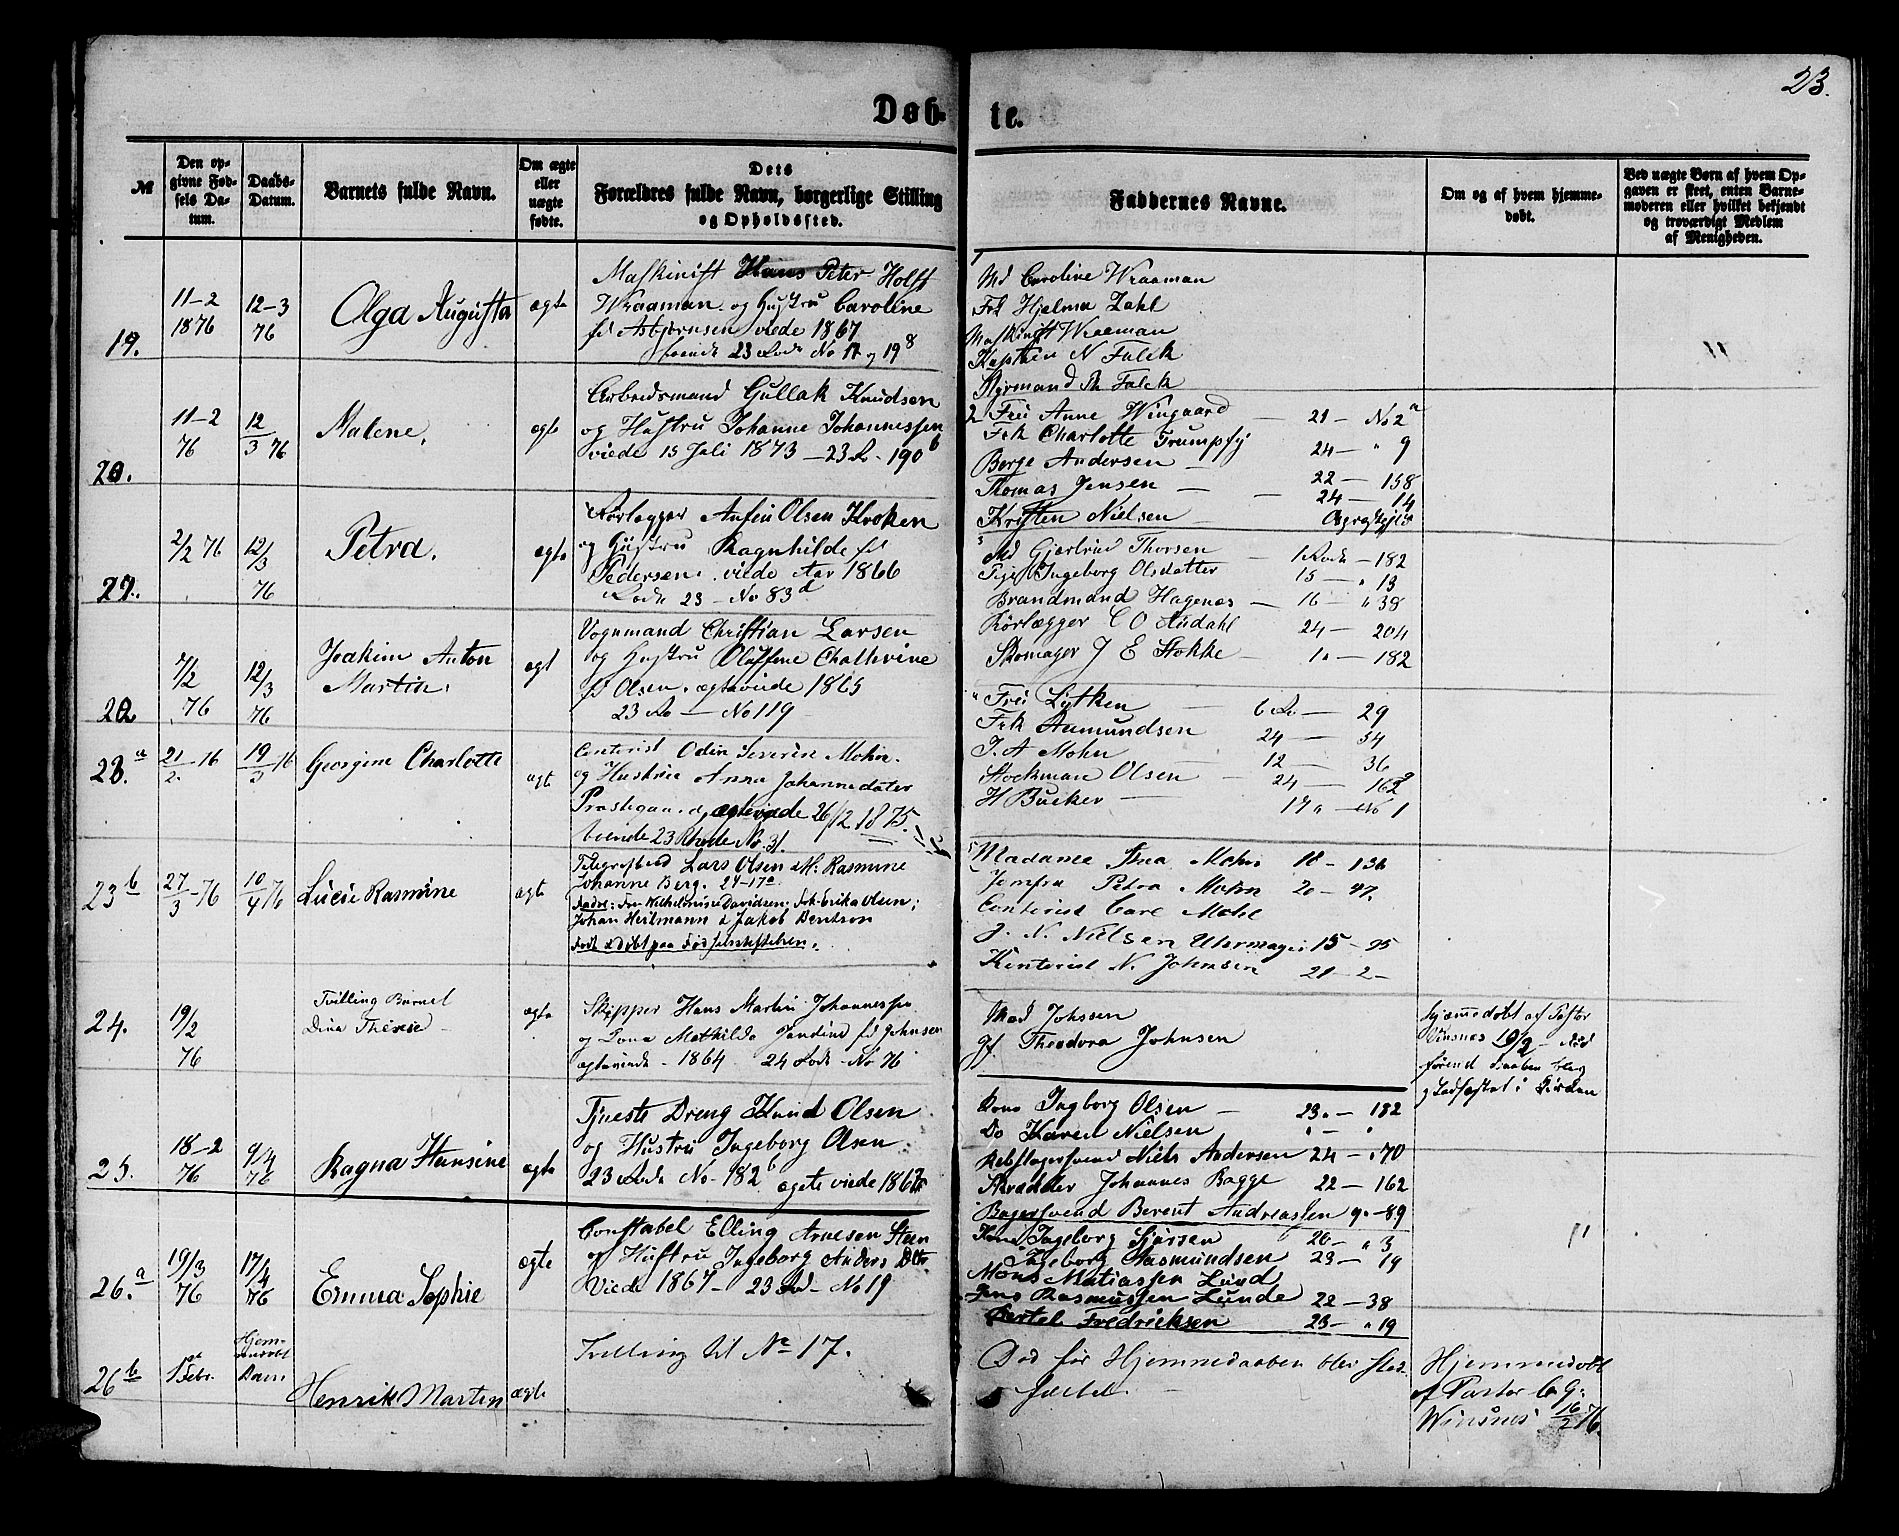 23.
Døb- te.
№
Den op-
givne Fød-
sels Da-
tum.
Daabs-
Datum.
Barnets fulde Navn.
Om ægte
eller
uægte
fødte.
Dets
Forældres fulde Navn, borgerlige Stilling
og Opholdssted.
Faddernes Navne.
Om og af hvem hjemme-
døbt.
Ved uægte Børn af hvem Op-
gaven er skeet, enten Barne-
moderen eller hvilket bekjendt
og troværdigt Medlem
af Menigheden.
19.
11-2
1876
12-3
76
Olga Augusta
ægte
Maskinist Hans Peter Holst
Wraaman og Hustru Caroline
fd Asbjørnsen viede 1867
23 Rode No
Md Caroline Wraaman
Frk Hjelma Zahl
Maskinist Wraaman
Kaptein N Falck
Styrmand Falck
20.
11-2
76
12
3 76
Malene.
ægte
Arbeidsmand Gullak Knudsen
og Hustru Johanne Johannessen
viede 15 Juli 1873 - 23 R. 190 b
2 Fru Anne Wingaard - 21 - No 2 a
Frk Charlotte Trumpfy 24 - " 9
Berge Andersen - 22 - 158
Thomas Jensen - 24 - 14
Kristen Nielsen -
2/2 76
12/3
76
Petra.
ægte
Rørlægger Anfin Olsen Kroken
og Hustru Ragnhilde fd
Pedersen. viede Aar 1866
Rode 23 - No 83 d
3 Md Gjertrud Thorsen - 1 Rode - 182
Pige Ingeborg Olsdatter 15 - " 13
Brandmand Hagenæs - 16 - " 38
Rørlægger C O 24 - 204
Skomager J E Stokke - 182
7/2
76
12/3
76
Joakim Anton
Martin.
ægt
Vognmand Christian Larsen
og Hustru Cathrine
fd Olsen. ægteviede 1865
23 Ro - No 119
Fru Lytken - 6 Ro - 29
Frk Aamundsen 24 - 54
J. A Mohn - 12 - 36
Stockman Olsen - 24 - 162
H Bücker - 17 " - No 1
23. a
21/2 - 76
19/3 - 76
Georgine Charlotte
ægt
Contorist Odin Severin Mohn.
og Hustru Anna Johannedater
ægteviede 26/12 1875.
boende 23 Rhode No. 31.
5 Madame Mohn 18 - 136
Jomfru Petra Mohn 20 - 47.
Contorist Carl Mohl
J. N. Nielsen Uhrmager 15 - 95
Kontorist N. Johnsen 21 - 2 -
23 b
27/3 - 76
10/4 76
Lucie Rasmine
ægte
Lars Olsen & M: Rasmine
Johanne Berg. 24-17 a
Fadd: Fru Wilhelmine Davidsen; Frk. Erika Olsen;
Johan Heilmann & Jakob Bentson
Født & døbt paa Fødselsstiftelsen.
24.
19/2
76
Tvilling Barnet
Dina Therese -
ægte
Skipper Hans Martin Johannessen
og Lona Mathilda Jandine fd Johnsen
ægteviede - 1864 24 Rode - No 76
Mad Johssen
Gf. Theodora Johnsen
Hjemmedøbt af Pastor
Winsnes 19/2 - død
førend Daaben blev
stadfæstet i Kirken
25.
18-2
76
9/4
76
Ragna Hansine
ægte
Tjeneste Dreng Knud Olsen
og Hustru Ingeborg Olsen
23 Rode No 182 b ægte viede 1867
Kone Ingborg Olsen - 23 " - 182
Do Karen Nielsen " - "
Rebslagersvend Niels Andersen 24 - 170
Skrædder Johannes Bagge 22 - 162
Bagersvend Berent Andreassen 9 " - 89
26. a
19/3
76
17/4
76
Emma Sophie
ægte
Constabel Elling Arnesen Steen
og Hustru Ingeborg Anders Dtr
Viede 1867 - 23 Rd - No 19
Kone Ingeborg Sjørsen 26 - " 3
Ingeborg Rasmundsen 23 - 19
Mons Matiassen Lund
Jens Rasmussen Lunde 22 - 38
Bertel Fredricksen 23 - " 19
26 b
1st Febr.
Hjem-
medøbt
Daaen
Henrik Martin
ægte
Tvilling til No 17.
Død før Hjemmedaaben blev stad-
fæstet. -
Hjemmedøbt
af Pastor C. G.
Winsnes 16/2 76.